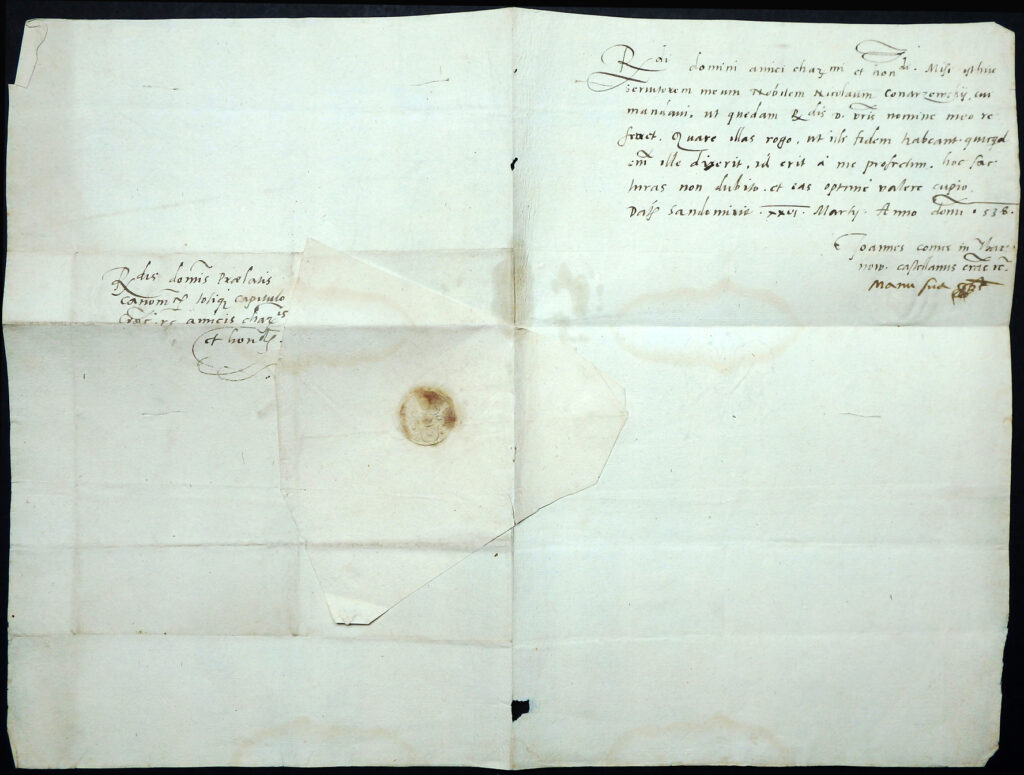 Rdi domini amici chazmi et hondi. Misi isthuc
seruitorem meum Nobilem Nicolaum Conarzewskij, cui
mandaui, ut quedam Rdis D. vris nomine meo re
ferret. Quare illas rogo, ut illi fidem habeant. quicqd
em ille dixerit, id erit a me profectum. hoc fac
turas non dubito. et eas optime valere cupio.
Dat Sandomirie . xxvi . Martij. Anno domi . 538.
Joannes comes in Thar
now. castellanus crac rc.
Manu sua
Rdis domis Prælatis
Canonicis totiq capitulo
Crac. rc amicis chazis
et hondis.